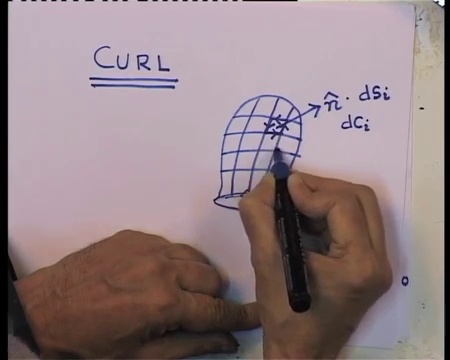 CURL
n̂ · dSi
dCi